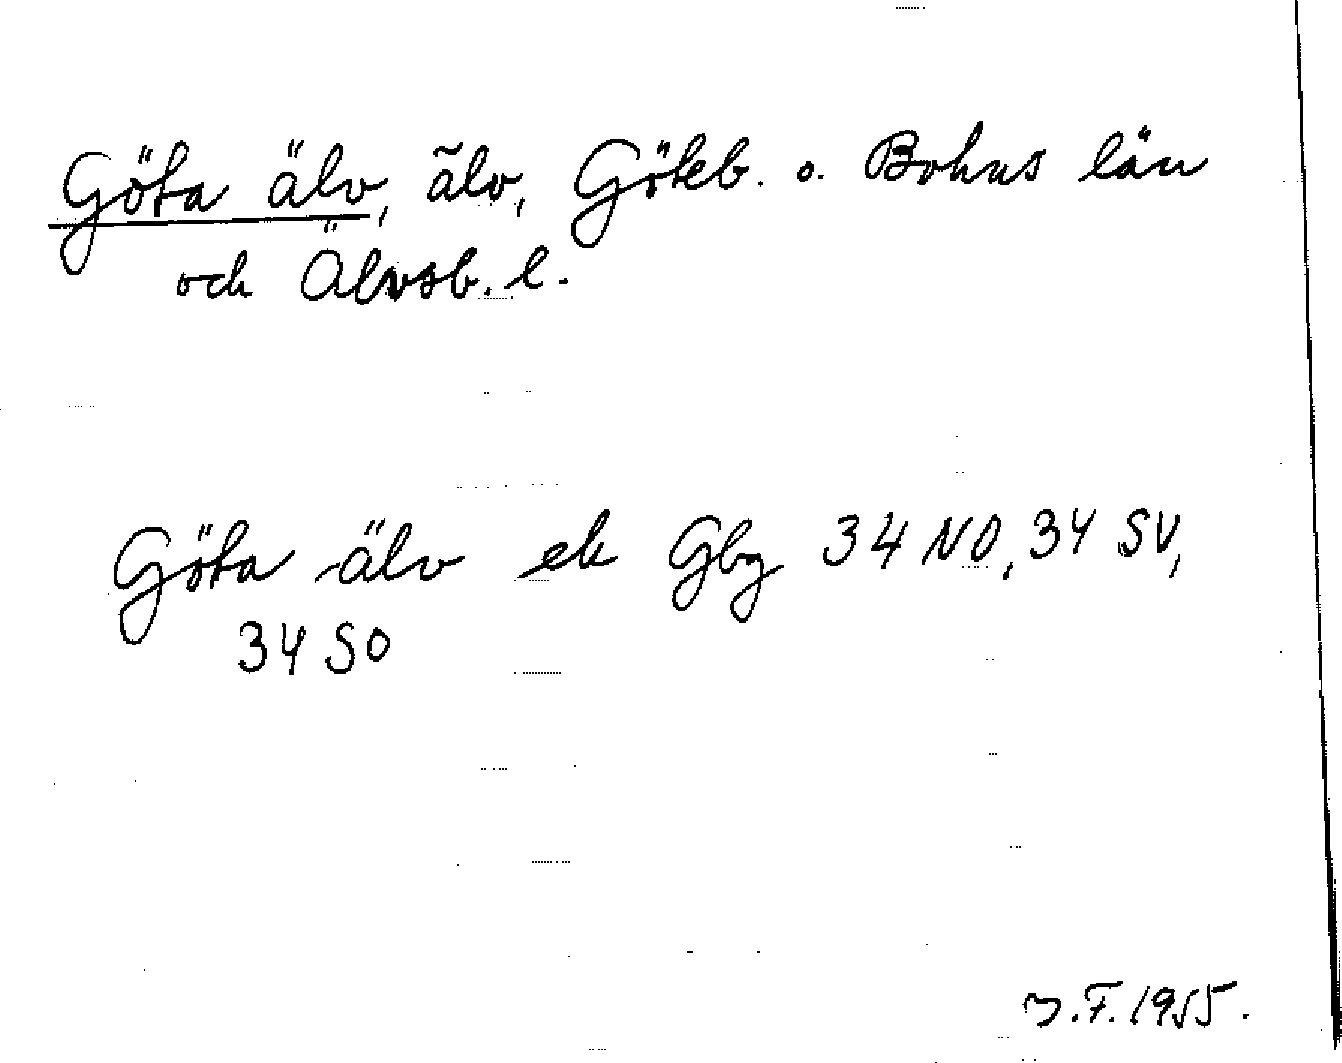 Göta älv, älv, Göteb. o. Bohus län
och Älvsb. l.
Göta älv ek Gbg 34 NO, 34 SV,
34 SO
F. 1955.